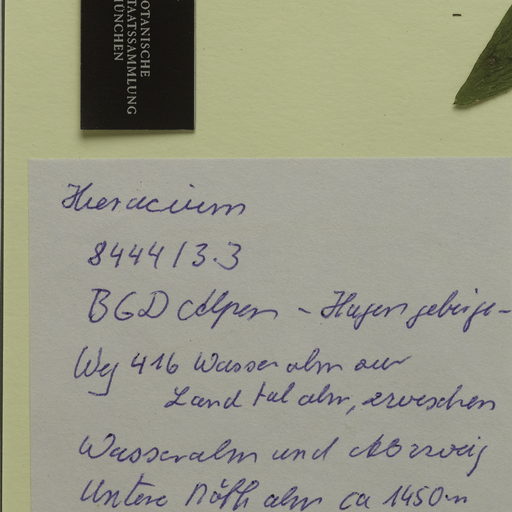 BOTANISCHE
STAATSSAMMLUNG
MÜNCHEN
Hieracium
8444/3.3
BGD Alpen - Hagengebirge-
Weg 416 Wasseralm zur
Landtalalm, zwischen
Wasseralm und Abzweig
Untere Röthalm ca 1450m